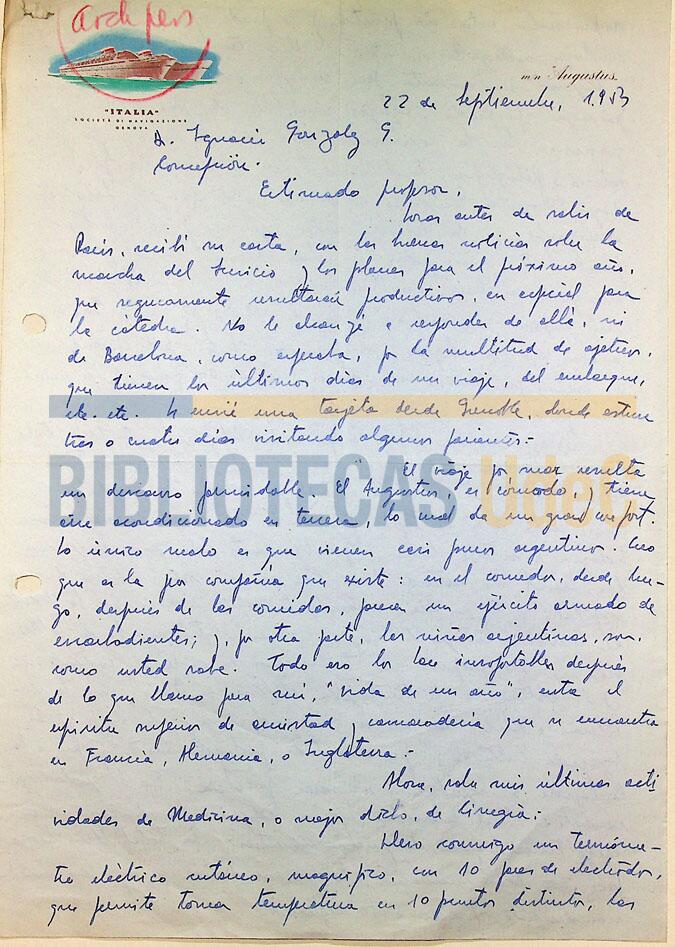 arch pers
m/n "Augustus"
"ITALIA"
SOCIETÀ DI NAVIGAZIONE
GENOVA
22 de Septiembre, 1953
Dr. Ignacio Gonzalez G.
Concepción.
Estimado profesor,
horas antes de salir de
París, recibí su carta, con las buenas noticias sobre la
marcha del Servicio y los planes para el próximo año,
que seguramente resultarán productivos, en especial para
la cátedra. No le alcancé a responder de allá, ni
de Barcelona, como esperaba, por la multitud de ajetreos,
que tienen los últimos días de un viaje, del embarque,
etc. etc. Le envié una tarjeta desde Grenoble, donde estuve
tres o cuatro días visitando algunos parientes.-
El viaje por mar resulta
un descanso formidable. El Augustus, es cómodo y tiene
aire acondicionado en tercera, lo cual da un gran confort.
Lo único malo es que vienen casi puros argentinos. Creo
que es la peor compañía que existe: en el comedor, desde lue-
go, después de las comidas, parecen un ejército armado de
escarbadientes; y, por otra parte, las niñas argentinas, son
como usted sabe. Todo eso los hace insoportables después
de lo que llamo para mí, "vida de un año", entre el
espíritu superior de amistad y camaradería que se encuentra
en Francia, Alemania, o Inglaterra.-
Ahora, sobre mis últimas acti-
vidades de Medicina, o mejor dicho, de Cirugía:
Llevo conmigo un termóme-
tro eléctrico cutáneo, magnífico, con 10 pares de electrodos,
que permite tomar temperatura en 10 puntos distintos, las
BIBLIOTECAS UdeC